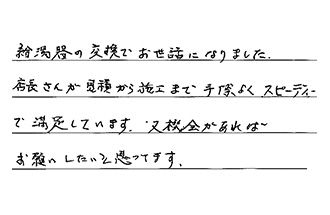 給湯器の交換でお世話になりました.
店長さんが見積から施工まで手際よくスピーディー
で満足しています. 又機会があれば
お願いしたいと思ってます.